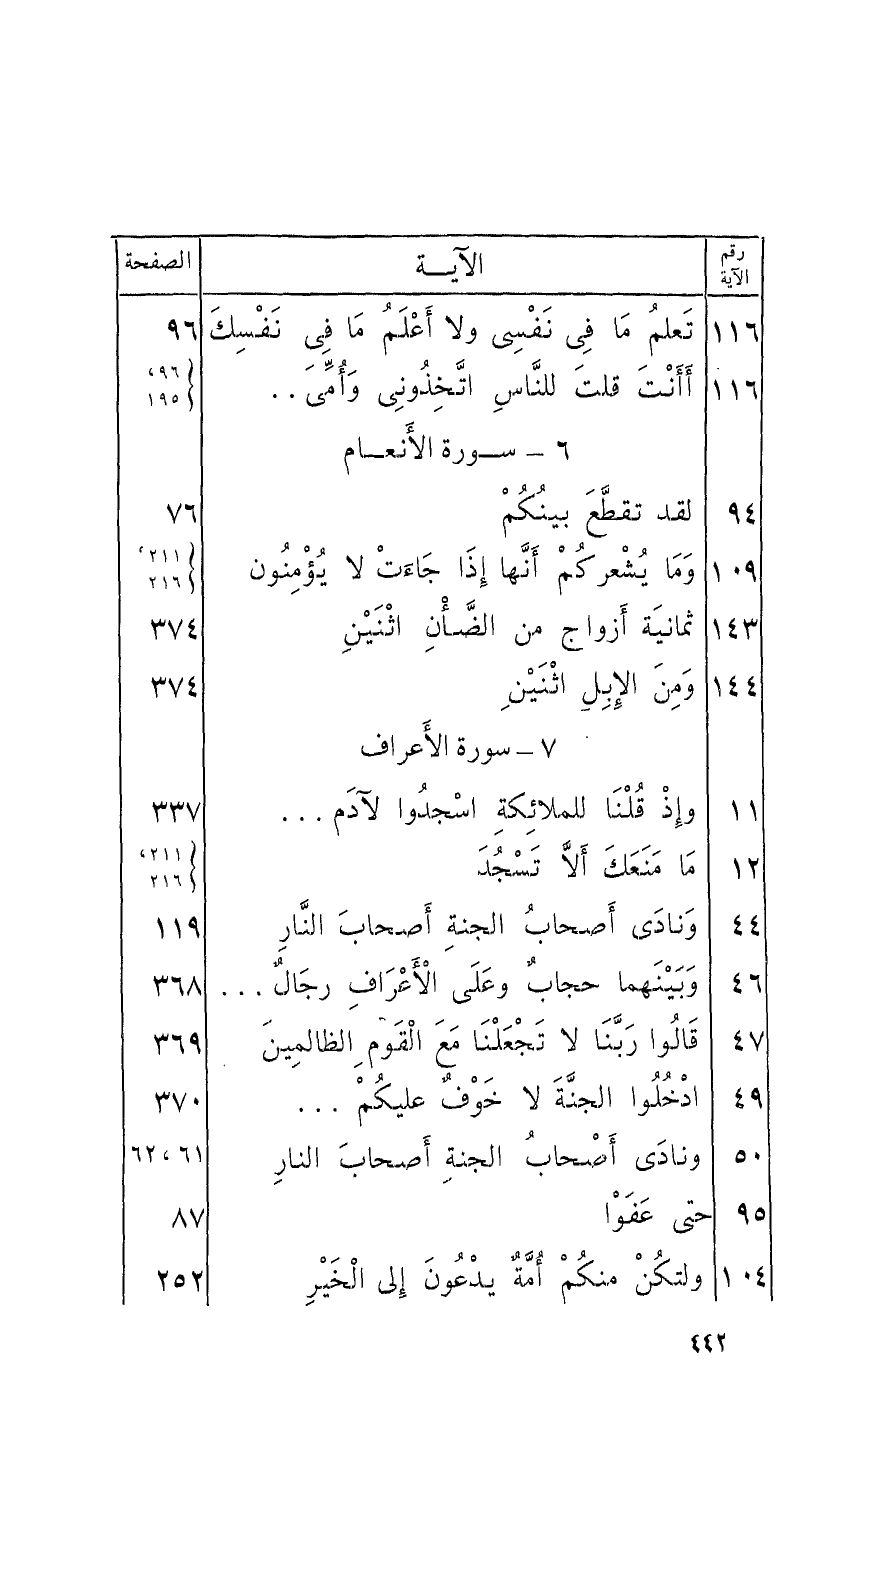 رقم الآية | الآيــة | الصفحة
١١٦ | تَعلمُ مَا فِى نَفْسِى ولا أَعْلَمُ مَا فِى نَفْسِكَ | ٩٦
١١٦ | أَأَنْتَ قلتَ للنَّاسِ اتَّخِذُونِى وَأُمِّىَ . . | ٩٦، ١٩٥
٦ – ســورة الأَنعــام
٩٤ | لقد تقطَّعَ بينُكُمْ | ٧٦
١٠٩ | وَمَا يُشْعركُمْ أَنَّها إِذَا جَاءَتْ لا يُؤْمِنُون | ٢١١، ٢١٦
١٤٣ | ثمانيَة أَزواج من الضَّأْنِ اثْنَيْنِ | ٣٧٤
١٤٤ | وَمِنَ الإِبِلِ اثْنَيْنِ | ٣٧٤
٧ – سورة الأَعراف
١١ | وإِذْ قُلْنَا للملائِكةِ اسْجدُوا لآدَم . . . | ٣٣٧
١٢ | مَا مَنَعَكَ أَلاَّ تَسْجُدَ | ٢١١، ٢١٦
٤٤ | وَنادَى أَصحابُ الجنةِ أَصحابَ النَّارِ | ١١٩
٤٦ | وَبَيْنَهما حجابٌ وعَلَى الْأَعْرَافِ رجَالٌ . . . | ٣٦٨
٤٧ | قَالُوا رَبَّنَا لا تَجْعَلْنَا مَعَ الْقَوْمِ الظالمِينَ | ٣٦٩
٤٩ | ادْخُلُوا الجنَّةَ لا خَوْفٌ عليكُمْ . . . | ٣٧٠
٥٠ | ونادَى أَصْحابُ الجنةِ أَصحابَ النارِ | ٦١، ٦٢
٩٥ | حتى عَفَوْا | ٨٧
١٠٤ | ولتكُنْ منكُمْ أُمَّةٌ يدْعُونَ إِلى الْخَيْرِ | ٢٥٢
٤٤٢